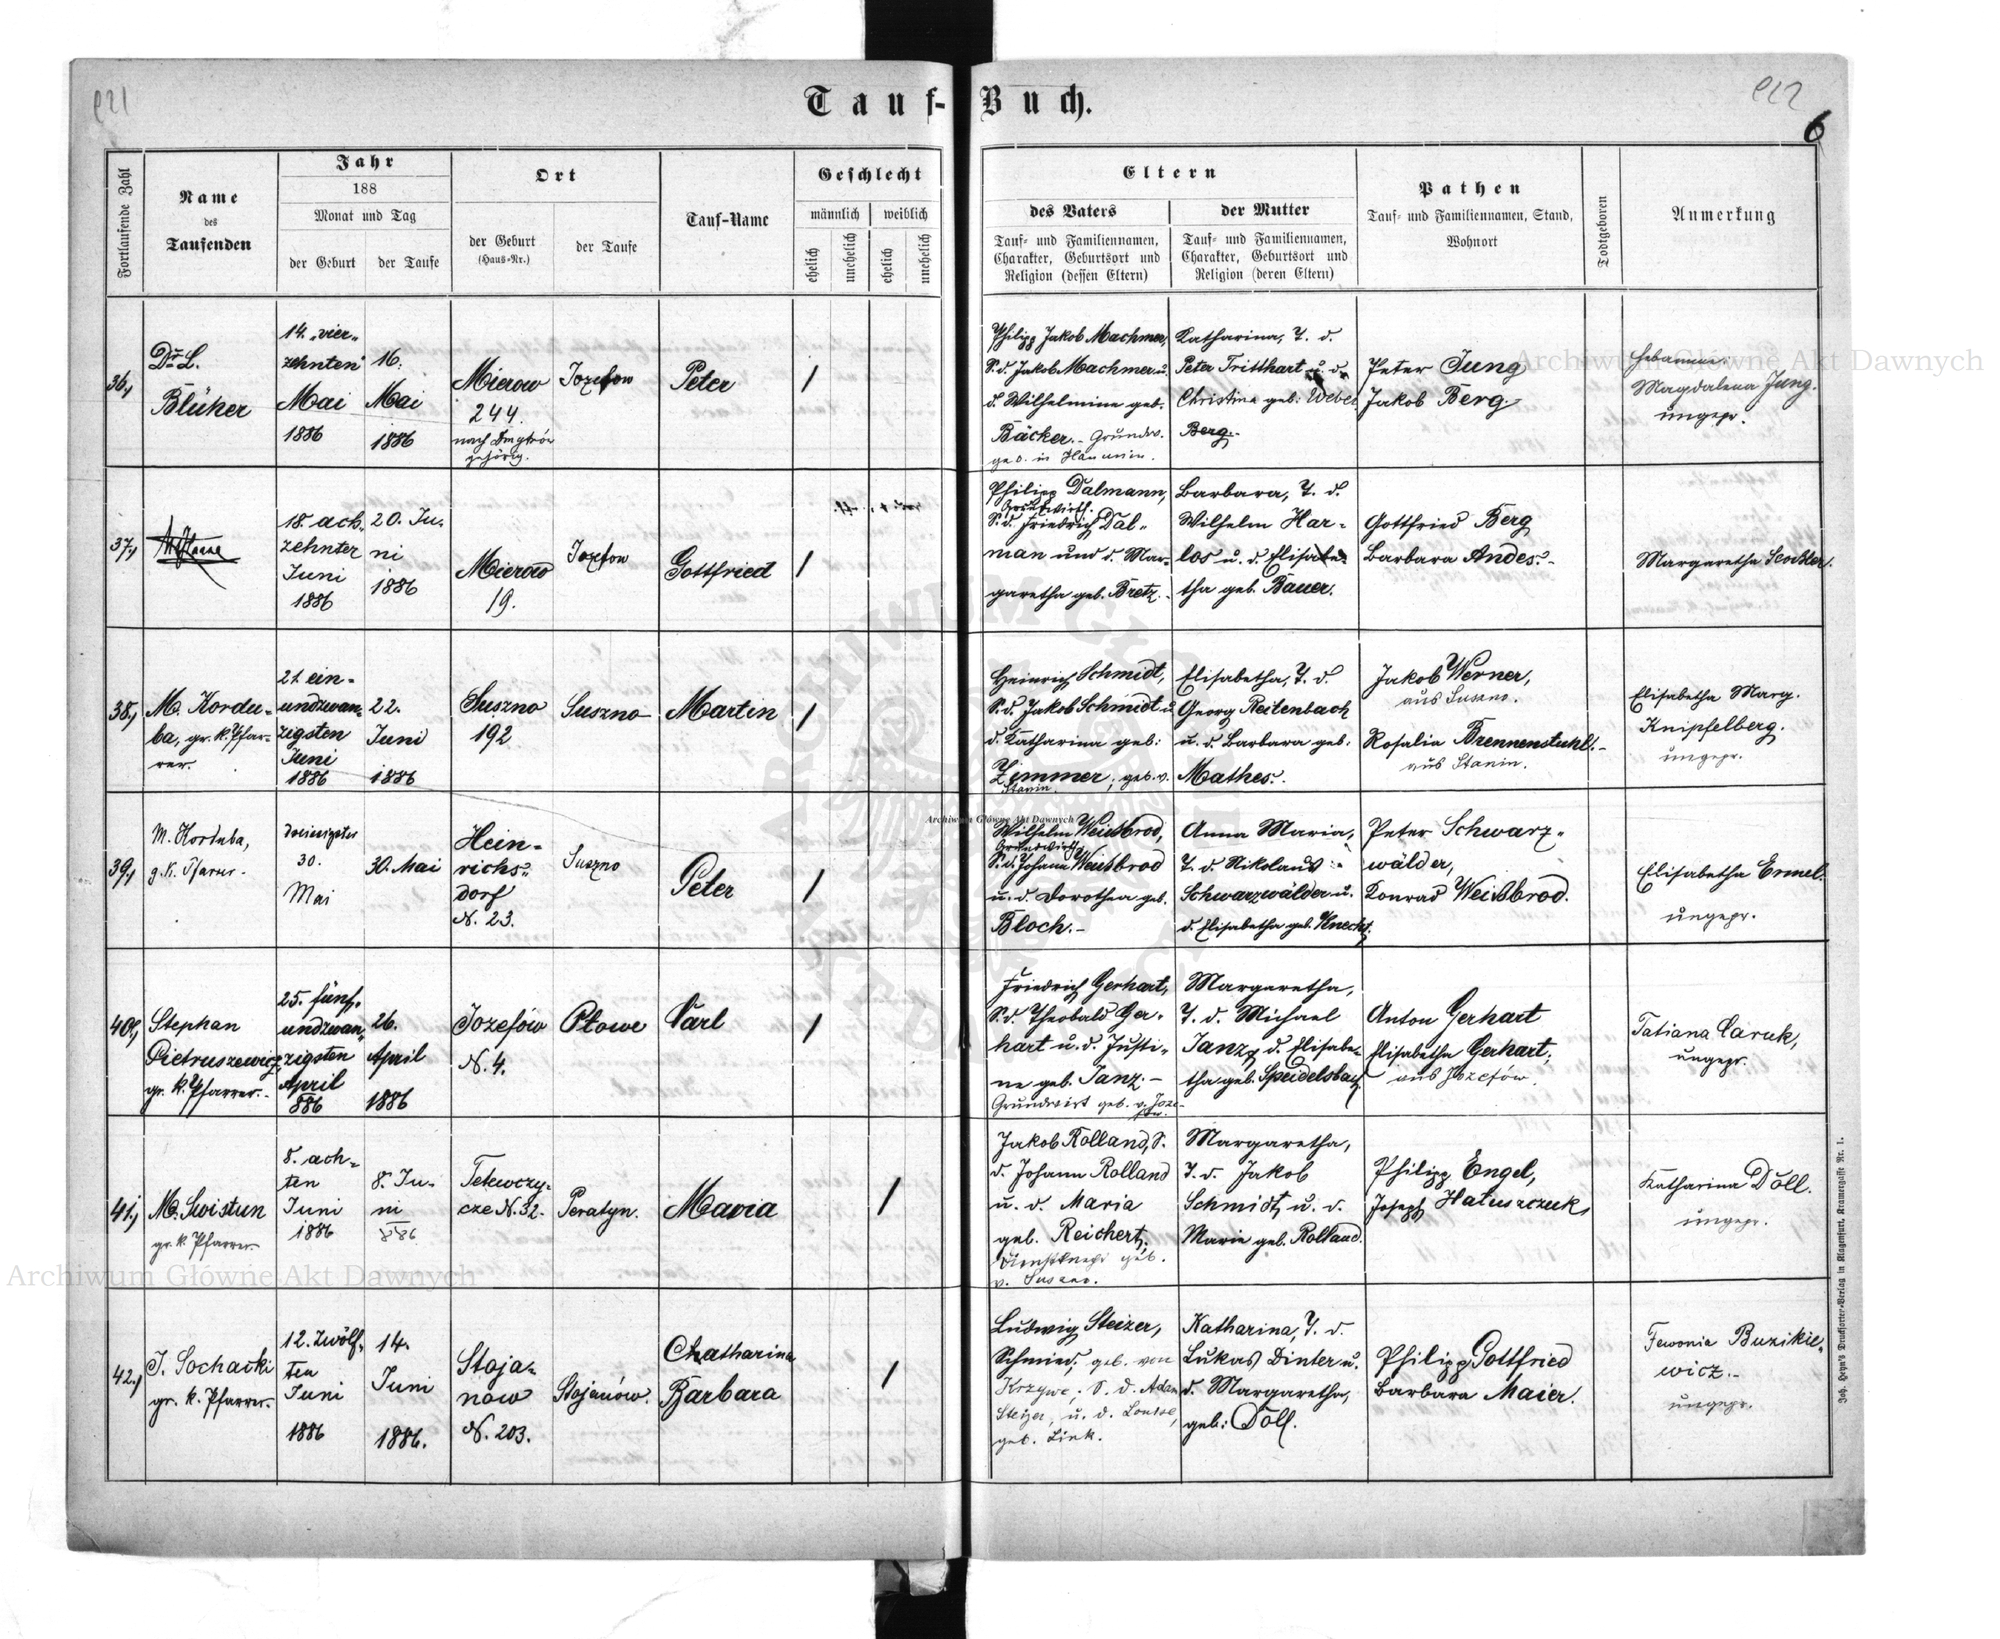 Tauf-Buch.
6
Fortlaufende Zahl
Name
des
Taufenden
Jahr
188
Monat und Tag
der Geburt
der Taufe
Ort
der Geburt
(Haus-Nr.)
der Taufe
Tauf-Name
Geschlecht
männlich
weiblich
ehelich
unehelich
ehelich
unehelich
Eltern
des Vaters
Tauf- und Familiennamen,
Charakter, Geburtsort und
Religion (dessen Eltern)
der Mutter
Tauf- und Familiennamen,
Charakter, Geburtsort und
Religion (deren Eltern)
Pathen
Tauf- und Familiennamen, Stand,
Wohnort
Todtgeboren
Anmerkung
36,
Dr. L.
Blüher
14. "vier-
zehnten"
Mai
1886
16.
Mai
1886
Mierow
244.
nach Dmytrów
gehörig.
Jozefow
Peter
/
Philipp Jakob Machmer,
S. d. Jakob Machmer u.
d. Wilhelmine geb.
Bäcker.- Grundw.
geb. in Hanunin.
Katharina, T. d.
Peter Tritthart u. d.
Christina geb: Weber
Berg.-
Peter Jung
Jakob Berg.
Hebamme:
Magdalena Jung.
ungepr.
37,
18. ach-
zehnter
Juni
1886
20. Ju-
ni
1886
Mierow
19.
Jozefow
Gottfried
/
Philipp Dalmann,
Grundwirth.
S. d. Friedrich Dal-
man und d. Mar-
garetha geb. Bretz.-
Barbara, T. d.
Wilhelm Har-
los u. d. Elisabe-
tha geb. Bauer.
Gottfried Berg
Barbara Andes.-
Margaretha
38,
M. Kordu-
ba, gr. k. Pfar-
rer.
21. ein-
undzwan-
zigsten
Juni
1886
22.
Juni
1886
Suszno
192
Suszno
Martin
/
Heinrich Schmidt,
S. d. Jakob Schmidt u
d. Katharina geb:
Zimmer; geb. v.
Stanin.
Elisabetha, T. d.
Georg Reitenbach
u. d. Barbara geb:
Mathes.
Jakob Werner,
aus Suszno.
Rosalia Brennenstuhl.-
aus Stanin.
Elisabetha Marg.
Knipfelberg.
ungepr.
39,
M. Korduba,
g. k. Pfarrer.
dreissigster
30.
Mai
30. Mai
Hein-
richs-
dorf
N. 23.
Suszno
Peter
/
Wilhelm Weisbrod,
Grundwirth
S. d. Johann Weisbrod
u. d. Dorothea geb.
Bloch.-
Anna Maria,
T. d. Nikolaus
Schwarzwälder u.
d. Elisabetha geb. Knecht.
Peter Schwarz-
wälder,
Konrad Weisbrod.
Elisabetha Ermel.
ungepr.
40,
Stephan
Pietruszewicz
gr. k. Pfarrer.-
25. fünf-
undzwan-
zigsten
April
886
26.
April
1886
Jozefów
N. 4.
Płowe
Karl
/
Friedrich Gerhart,
S. d. Theobald Ger-
hart u. d. Justi-
ne geb. Janz.-
Grundwirt geb. v. Joze-
fów.
Margaretha,
T. d. Michael
Janz, d. Elisabe-
tha geb. Speidelsbach
Anton Gerhart
Elisabetha Gerhart;
aus Jozefów.
Tatiana Caruk,
ungepr.
41,
M. Swistun
gr. k. Pfarrer.
8. ach-
ten
Juni
1886
8. Ju-
ni
886
Tetewczy-
cze N. 32.
Peratyn.
Maria
/
Jakob Rolland, S.
d. Johann Rolland
u. d. Maria
geb. Reichert.
Dienstknecht geb.
v. Suszno.
Margaretha,
T. d. Jakob
Schmidt, u. d.
Marie geb. Rolland.
Philipp Engel,
Joseph Hatuszczuk,
Katharina Döll.
ungepr.
42,
J. Sochacki
gr. k. Pfarrer.
12. zwölf-
ten
Juni
1886
14.
Juni
1886.
Stoja-
now
N. 203.
Stojanów.
Chatharina
Barbara
/
Ludwig Steizer,
Schmied, geb. von
Krzywe, S. d. Adam
Steizer, u. d. Louise,
geb. Link.
Katharina, T. d.
Lukas Dinter u.
d. Margaretha,
geb: Döll.
Philipp Gottfried
Barbara Maier.
Fewonia Buzikie-
wicz.-
ungepr.
Joh. Heyn's Drucksorten-Verlag in Klagenfurt, Kramergasse Nr. 1.
Archiwum Główne Akt Dawnych
Archiwum Główne Akt Dawnych
Archiwum Główne Akt Dawnych